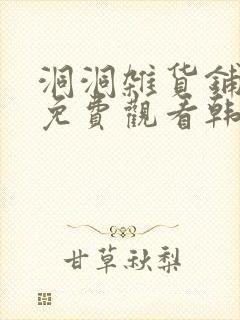 洞洞雜货鋪
免費觀看韩
甘草秋梨